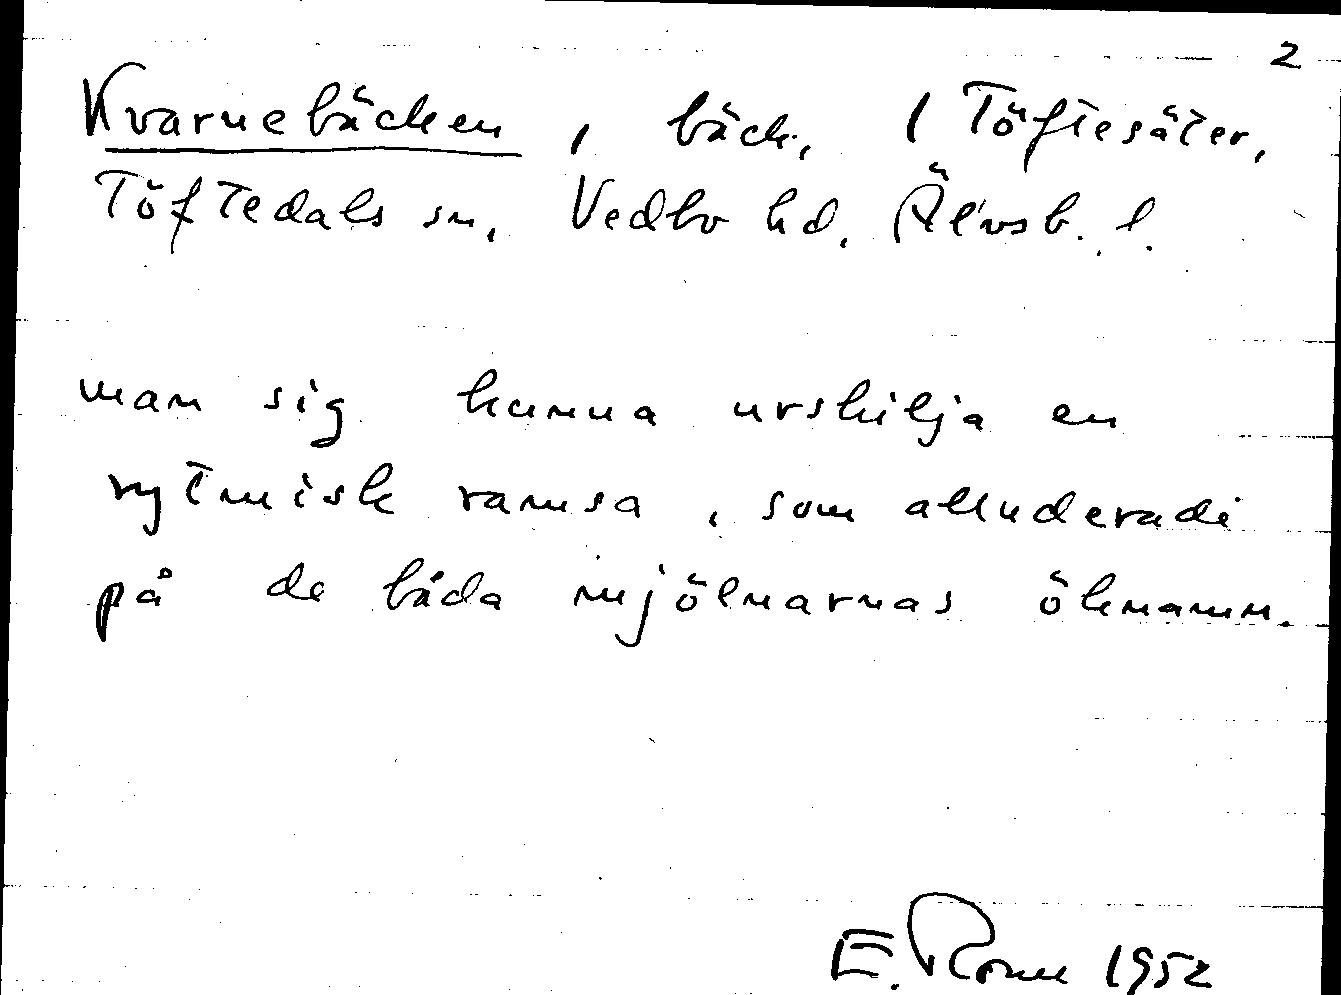 2
Kvarnebäcken, bäck, 1 Töftesäter,
Töftedals sn, Vedbo hd, Älvsb. l.
man sig kunna urskilja en
rytmisk ramsa, som alluderade
på de båda mjölnarnas öknamn.
E. 1952